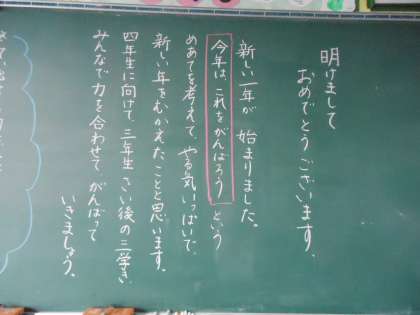 明けまして
おめでとうございます。
新しい一年が始まりました。
「今年は、これをがんばろう」という
めあてを考えて、やる気いっぱいで、
新しい年をむかえたことと思います。
四年生に向けて、三年生さい後の三学き、
みんなで力を合わせて、がんばって
いきましょう。